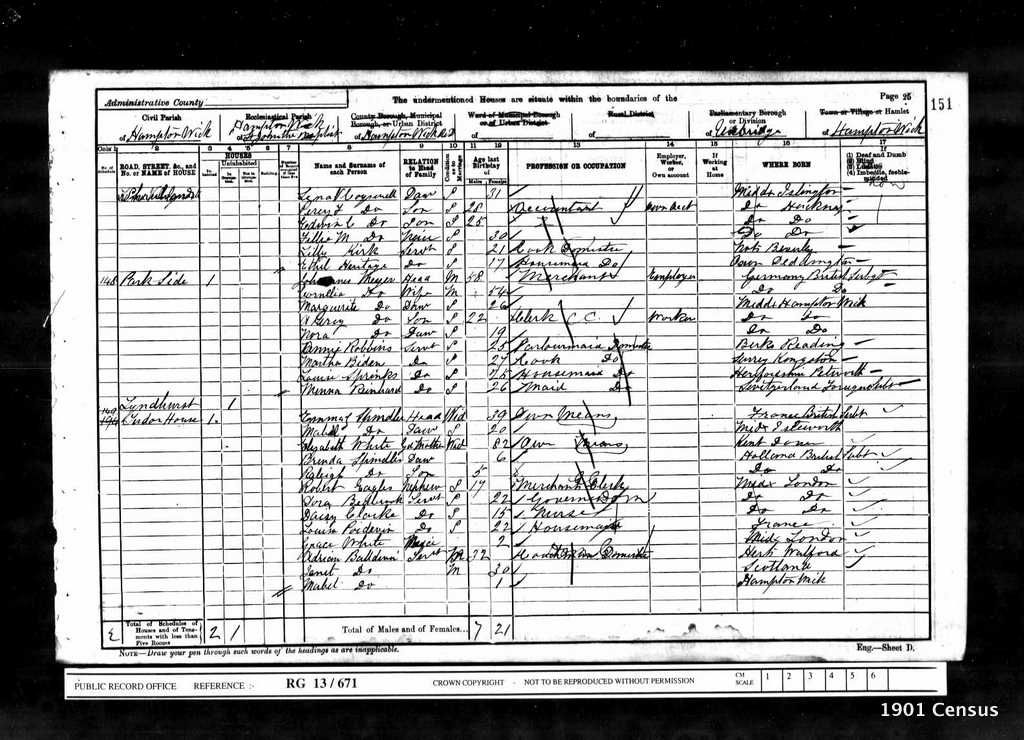 Page 25
151
The undermentioned Houses are situate within the boundaries of the
Administrative County
Civil Parish
of Hampton Wick
Ecclesiastical Parish
of St John the Baptist
County Borough, Municipal Borough, or Urban District
of Hampton Wick U.D
Ward of Municipal Borough or of Urban District
of
Rural District
of
Parliamentary Borough or Division
of Uxbridge
Town or Village or Hamlet
of Hampton Wick
ROAD, STREET, &c., and No. or NAME of HOUSE
HOUSES
Name and Surname of each Person
RELATION to Head of Family
Age last Birthday of
Males Females
PROFESSION OR OCCUPATION
Employer, Worker, or Own account
If Working at Home
WHERE BORN
(1) Deaf and Dumb
(2) Blind
(3) Lunatic
(4) Imbecile, feeble-minded
Daw S 31 Middx Islington
Percy Do Son S 28 Accountant Own acct Do Hackney
Edwin C Do Son S 25 Do Do
M Do Niece S 30 Do Do
Lilly Kirk Servt S 21 Cook Domestic
Ethel Heritage Do S 17 Do
148 Park Side 1 Meyer Head M 58 Merchant Employer Germany British Subjt
Cornelia Do Wife M 54 Do Do
Marguerite Do Daw S 26 Middx Hampton Wick
Percy Do Son S 22 Clerk Worker Do Do
Nora Do Daw S 19 Do Do
Fannie Robbins Servt S 25 Parlourmaid Domestic Berks Reading
Martha Do S 27 Cook Do Surrey Kingston
Louisa Do S 25 Housemaid Do
Minna Do S 26 Maid Do Switzerland Foreign Subt
Lyndhurst 1
149 Tudor House 1 Emma Spindler Head Wid 39 Own Means France British Subt
Mabel Do Daw S 20 Midx Isleworth
Elizabeth White Gd Mother Wid 82 Own Means Kent Dover
Brenda Spindler Daw 6 Holland British Subt
Raleigh Do Son 5 Do Do
Robert Eagles Nephew S 17 Merchants Clerk Midx London
Dora Servt S 22 Governess Do Do
Daisy Clarke Do S 15 Nurse Do Do
Louise Poidevin Do S 22 Housemaid France
Grace White Niece 2 Midx London
Adrian Servt M 32 Coachman Domestic Herts Watford
Janet Do M 30 Scotland
Mabel Do 1 Hampton Wick
Total of Schedules of Houses and of Tenements with less than Five Rooms
2 1
Total of Males and of Females... 7 21
NOTE—Draw your pen through such words of the headings as are inapplicable.
Eng.—Sheet D.
PUBLIC RECORD OFFICE REFERENCE :- RG 13/671 CROWN COPYRIGHT - NOT TO BE REPRODUCED WITHOUT PERMISSION
CM SCALE 1 2 3 4 5 6
1901 Census